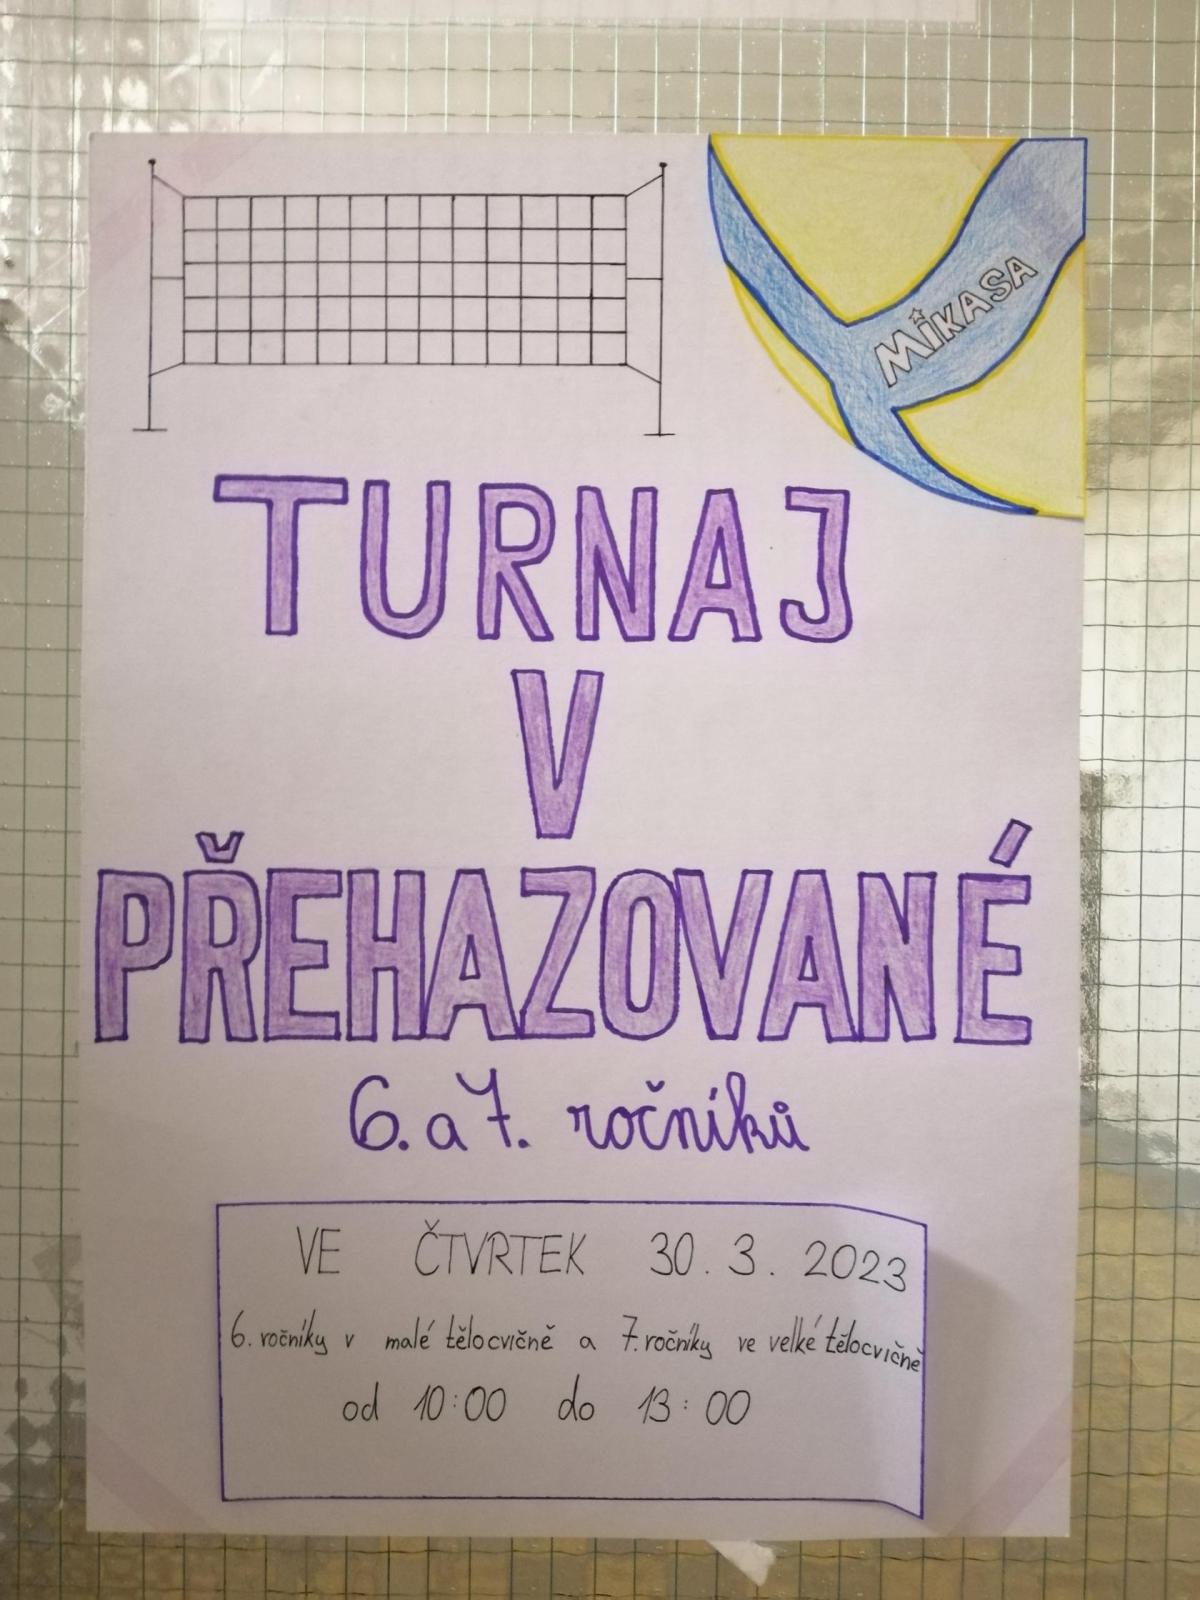 MIKASA
TURNAJ
V
PŘEHAZOVANÉ
6. a 7. ročníků
VE ČTVRTEK 30. 3. 2023
6. ročníky v malé tělocvičně a 7. ročníky ve velké tělocvičně
od 10:00 do 13:00